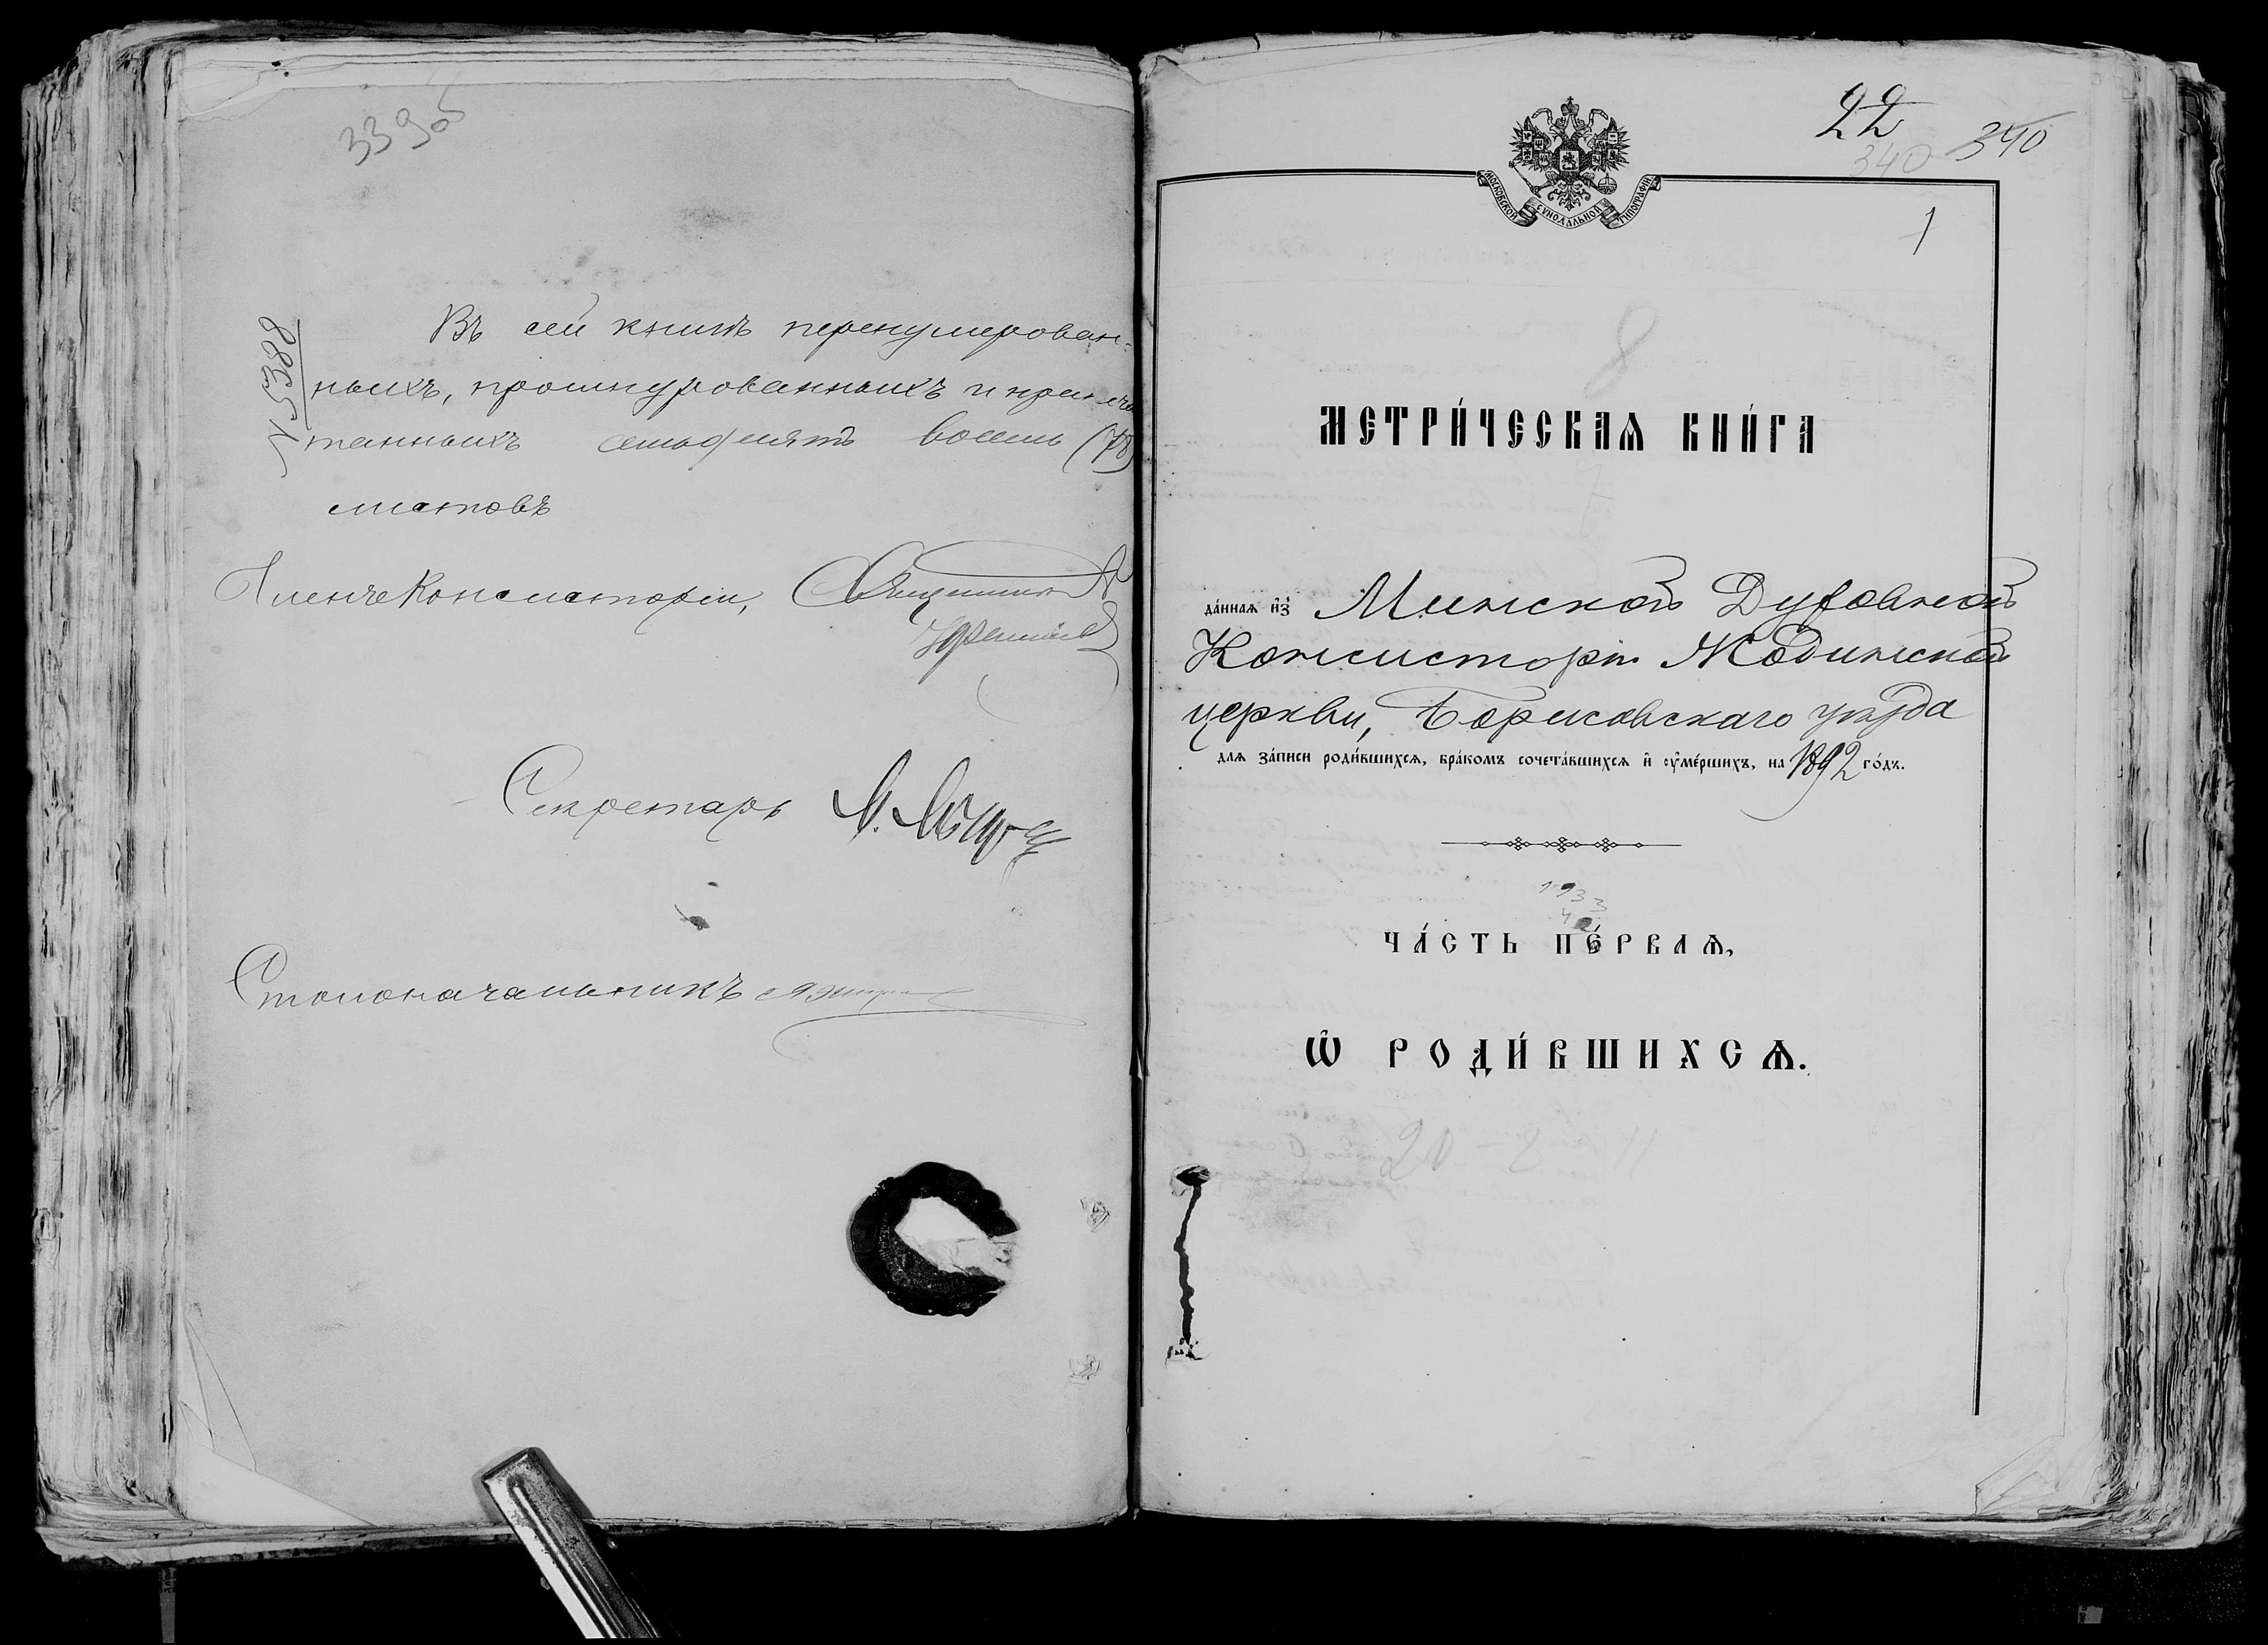 339об
№ 5388
Въ сей книгѣ перенумерован-
ныхъ, прошнурованныхъ и припеча
танныхъ семьдесятъ восемь (78)
листовъ
Членъ Консисторіи, Священникъ
Секретарь
Столоначальникъ
22
340 340
МОСКОВСКОЙ СѴНОДАЛЬНОЙ ТИПОГРАФІИ
1
8
МЕТРИ́ЧЕСКАѦ КНИ́ГА
да́ннаѧ и҆з̾ Минской Духовной
Консисторіи Жодинской
церкви, Борисовскаго уѣзда
для за́писи роди́вшихсѧ, бра́комъ сочета́вшихсѧ и҆ ᲂу҆ме́ршихъ, на 1892 го́дъ.
ЧА́СТЬ ПЕ́РВАѦ,
Ѡ҆ РОДИ́ВШИХСѦ.